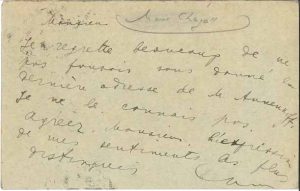 Monsieur Marc Chagall
Je regrette beaucoup de ne
pas pouvoir vous donné la
dernière adresse de M.
Je ne le connais pas.
Agréez, Monsieur, l'expression
de mes sentiments les plus
distingués